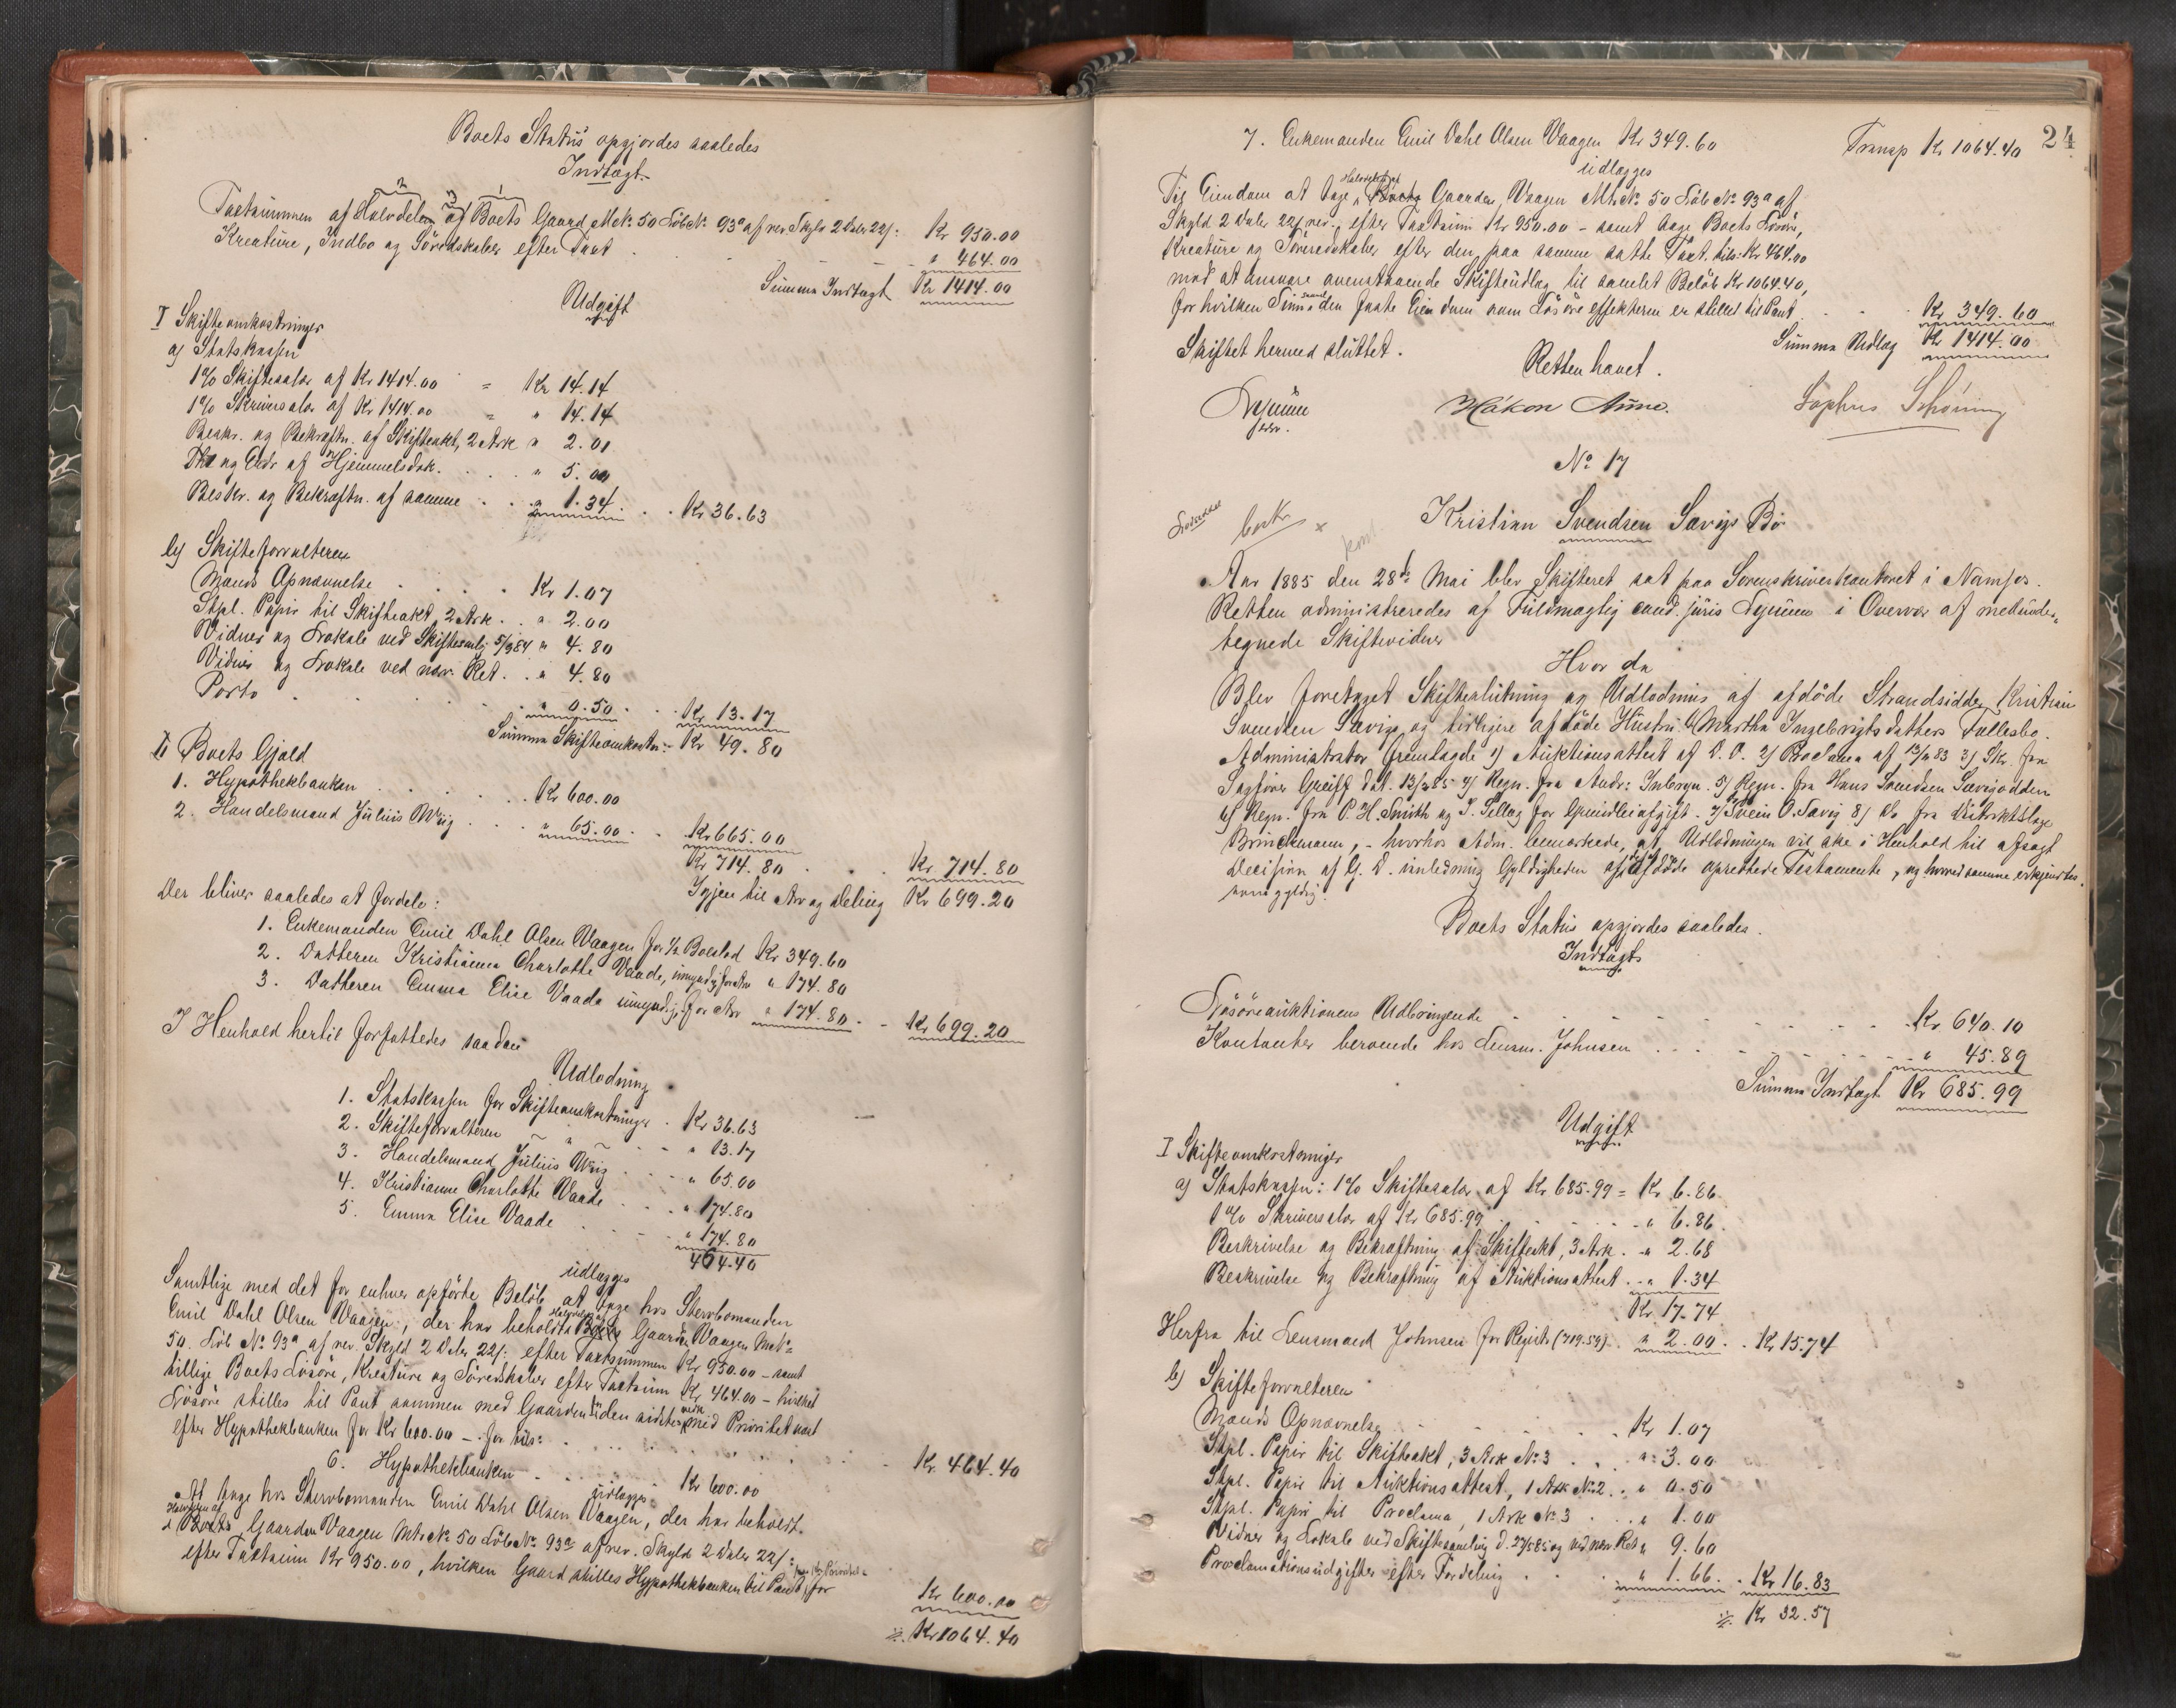 Boets Status opgjordes saaledes
Indtægt
Taxtsummen af Halvdelen af Boets Gaard M.No. 50 Løb No. 93a af rev. Skyld 2 Daler 22 s: Kr 950.00
Kreature, Indbo og Søredskaber efter Taxt . - - - " 464.00
Summa Indtægt Kr 1414.00
Udgift
I Skifteomkostninger
a) Statskassen
1% Skiftesalær af Kr 1414.00 = Kr 14.14
1% Skriversalær af Kr 1414.00 = " 14.14
Beskr. og Bekræftn. af Skifteakt, 2 Ark " 2.01
Thl og Extr af Hjemmelsdok. . . . " 5.00
Beskr. og Bekræftn. af samme . . " 1.34 . . Kr 36.63
b) Skifteforvalteren
Mænds Opnævnelse . . . Kr 1.07
Stpl. Papir til Skifteakt, 2 Ark . . " 2.00
Vidner og Lokale ved Skiftesaml. 5/9 84 " 4.80
Vidner og Lokale ved nærv. Ret . . " 4.80
Porto . . . " 0.50 . . Kr 13.17
Summa Skifteomkostn: Kr 49.80
II Boets Gjæld
1. Hypothekbanken . . . . . Kr 600.00
2. Handelsmand Julius Wiig . . . " 65.00 . . Kr 665.00
Kr 714.80 . . . Kr 714.80
Igjen til Arv og Deling Kr 699.20
Der bliver saaledes at fordele:
1. Enkemanden Emil Dahl Olsen Vaagen for ½ Boeslod Kr 349.60
2. Datteren Kristianna Charlotte Vaade, umyndig for Arv " 174.80
3. Datteren Emma Elise Vaade umyndig for Arv " 174.80 . - Kr 699.20
I Henhold hertil forfattedes saadan
Udlodning
1. Statskassen for Skifteomkostninger . Kr 36.63
2. Skifteforvalteren ~ " ~ - " 13.17
3. Handelsmand Julius Wiig . . - " 65.00
4. Kristianne Charlotte Vaade . . . " 174.80
5. Emma Elise Vaade . . - " 174.80
464.40
Samtlige med det for enhver opførte Beløb udlægges at tage hos Stervbomanden
Emil Dahl Olsen Vaagen, der har beholdt Halvdelen af Boets Gaarden Vaagen Mat No
50 Løb No 93a af rev. Skyld 2 Daler 22 s: efter Taxtsummen Kr 950.00 - samt
tillige Boets Løsøre, Kreature og Søredskaber efter Taxtsum Kr 464.00 - hvilket
Løsøre stilles til Pant sammen med Gaarden, den sidste med Prioritet næst
efter Hypothekbanken for Kr 600.00 - for tils: . . . . . Kr 464.40
6. Hypothekbanken - . . . . Kr 600.00
udlægges
At tage hos Stervbomanden Emil Dahl Olsen Vaagen, der har beholdt
Halvdelen af
Boets Gaarden Vaagen Mtr No 50 Løb No 93a af rev. Skyld 2 Daler 22 s:
efter Taxtsum Kr 950.00, hvilken Gaard stilles Hypothekbanken til Pant for
Kr 600.00
Kr 1064.40
24
7. Enkemanden Emil Dahl Olsen Vaagen Kr 349.60 Transp Kr 1064.40
udlægges
Til Eiendom at tage i Halvdelen af Boets Gaarden Vaagen M No 50 Løb No 93a af
Skyld 2 Daler 22 s rev., efter Taxtsum Kr 950.00 - samt tage Boets Løsøre,
Kreature og Søreredskaber efter den paa samme satte Taxt, tils: Kr 464.00
mod at ansvare ovenstaaende Skifteudlæg til samlet Beløb Kr 1064.40,
for hvilken Sum saavel den faste Eiendom som Løsøreeffekterne er stillet til Pant . . . Kr 349.60
Summa Udlæg Kr 1414.00
Skiftet hermed sluttet.
Retten hævet.
Håkon Aune. Sophus Schøning
No 17
Kristian Svendsen Sævigs Bo
Aar 1885 den 28de Mai blev Skifteret sat paa Sorenskriverkontoret i Namsos.
Retten administreredes af Fuldmægtig cand. juris Lysuun i Overvær af medunder-
tegnede Skiftevidner
Hvor da
Blev foretaget Skifteslutning og Udlodning af afdøde Strandsidder Kristian
Svendsen Sævigs og tidligere afdøde Hustru Martha Ingebrigtsdatters Fællesbo.
Administrator fremlagde 1) Auktionsattest af D. D. 2) Proclama af 13/11 83 3) Skr. fra
Sagfører Greiff dat. 13/2 85 4) Regn. fra Andr: Inbryn. 5) Regn. fra Hans Svendsen Sævigodden
6) Regn. fra P. H. Smith og J. Sellæg for Grundleieafgift. 7) Svein O. Sævig 8) Do fra Distriktslæge
Brinchmann, - hvorhos Adm. bemærkede, at Udlodningen vil ske i Henhold til afsagt
Decision af G. D. anledning Gyldigheden af afdøde oprettede Testamente, og hvorved samme erkjendtes
som gyldig.
Boets Status opgjordes saaledes.
Indtægt
Løsøreauktionens Udbringende - . . . . . Kr 640.10
Kontanter beroende hos Lensm. Johnsen . . . - " 45.89
Summa Indtægt Kr 685.99
Udgift
I Skifteomkostninger
a) Statskassen: 1% Skiftesalær af Kr 685.99 = Kr 6.86
1% Skriversalær af Kr 685.99 . . . . " 6.86
Beskrivelse og Bekræftning af Skifteakt, 3 Ark . " 2.68
Beskrivelse og Bekræftning af Auktionsattest . . " 1.34
Kr 17.74
Herfra til Lensmand Johnsen for Registr. (719.59) . " 2.00 . . Kr 15.74
b) Skifteforvalteren
Mænds Opnævnelse . . . . . Kr 1.07
Stpl. Papir til Skifteakt, 3 Ark No 3 . . . " 3.00
Stpl. Papir til Auktionsattest, 1 Ark No 2 . . " 0.50
Stpl. Papir til Proclama, 1 Ark No 3 . . . " 1.00
Vidner og Lokale ved Skiftesamling d. 27/5 85 og ved nærv. Ret " 9.60
Proclamationsudgifter efter Fordeling . . . " 1.66 . . Kr 16.83
Kr 32.57